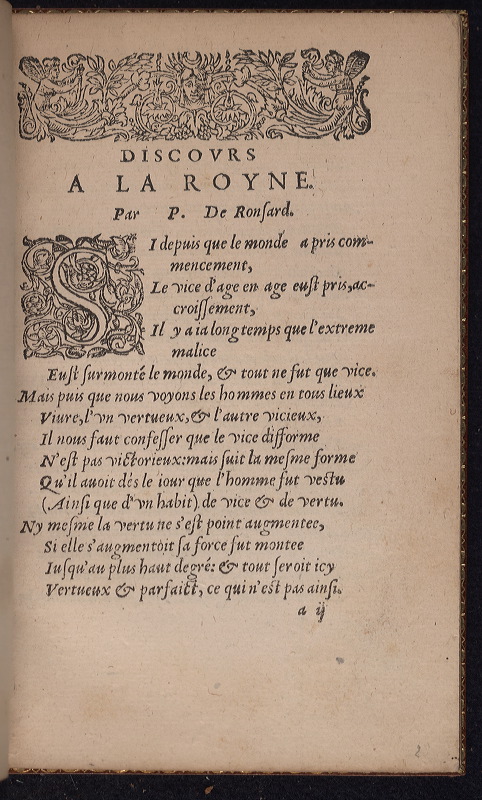 DISCOVRS
A LA ROYNE.
Par P. De Ronſard.
SI depuis que le monde a pris com-
mencement,
Le vice d'age en age euſt pris, ac-
croiſſement,
Il y a ia long temps que l'extreme
malice
Euſt ſurmonté le monde, & tout ne fut que vice.
Mais puis que nous voyons les hommes en tous lieux
Viure, l'vn vertueux, & l'autre vicieux,
Il nous faut confeſſer que le vice difforme
N'eſt pas victorieux: mais ſuit la meſme forme
Qu'il auoit dés le iour que l'homme fut veſtu
(Ainſi que d'vn habit) de vice & de vertu.
Ny meſme la vertu ne s'eſt point augmentee,
Si elle s'augmentoit ſa force fut montee
Iuſqu'au plus haut degré: & tout ſeroit icy
Vertueux & parfaict, ce qui n'eſt pas ainſi.
a ij
2